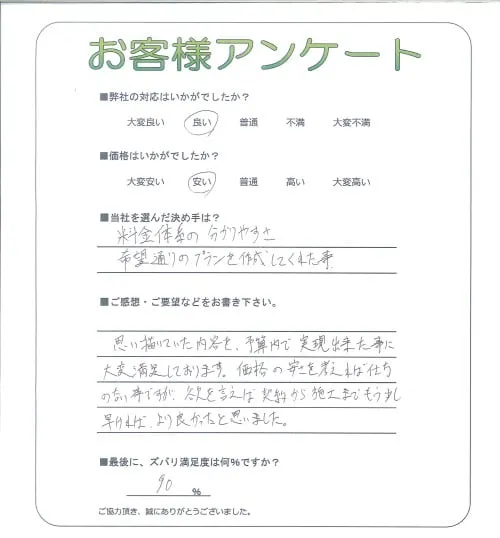 お客様アンケート
■弊社の対応はいかがでしたか？
大変良い 良い 普通 不満 大変不満
■価格はいかがでしたか？
大変安い 安い 普通 高い 大変高い
■当社を選んだ決め手は？
料金体系の分かりやすさ
希望通りのプランを作成してくれた事
■ご感想・ご要望などをお書き下さい。
思い描いていた内容を、予算内で実現出来た事に
大変満足しております。価格の安さを考えれば仕方
のない事ですが、欲を言えば契約から施工までもう少し
早ければ、より良かったと思いました。
■最後に、ズバリ満足度は何%ですか？
90 %
ご協力頂き、誠にありがとうございました。